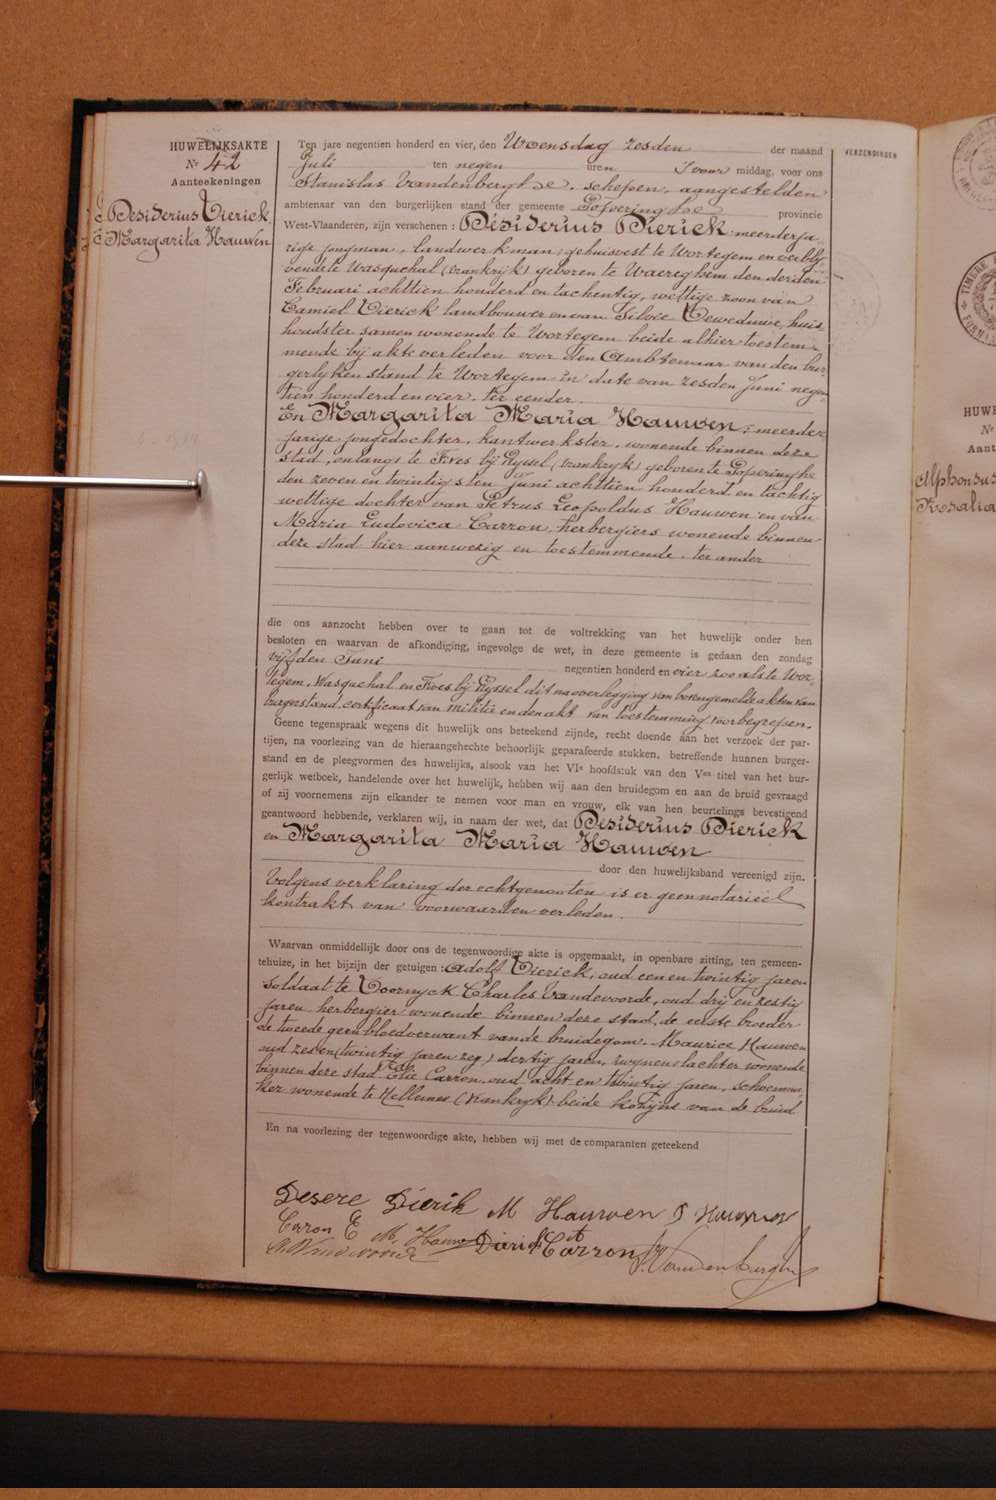 HUWELIJKSAKTE
Nr 42
Aanteekeningen
Desiderius Dierick
&
Margarita Hauwen
Ten jare negentien honderd en vier, den Woensdag zesden der maand
Juli ten negen uren 's voor middag, voor ons
Stanislas Vandenberghe, schepen, aangestelden
ambtenaar van den burgerlijken stand der gemeente Poperinghe provincie
West-Vlaanderen, zijn verschenen : Désiderius Dierick, meerderja-
rige jongman, landwerkman, gehuisvest te Wortegem en verblij-
vendete Wasquehal (Frankrijk) geboren te Waereghem den derden
Februari achttien honderd en tachentig, wettige zoon van
Camiel Dierick landbouwer en van Silvie Deweduwe, huis-
houdster samen wonende te Wortegem beide alhier toestem-
mende bij akte verleden voor den Ambtenaar van den bur-
gerlyken stand te Wortegem in date van zesden Juni negen-
tien honderd en vier. ter eender
En Margarita Maria Hauwen, meerder-
jarige jongedochter, kantwerkster, wonende binnen deze
stad, onlangs te Fives bij Ryssel (Frankryk) geboren te Poperinghe
den zeven en twintigsten Juni achttien honderd en tachtig
wettige dochter van Petrus Leopoldus Hauwen en van
Maria Ludovica Carron, herbergiers wonende binnen
deze stad hier aanwezig en toestemmende. ter ander
die ons aanzocht hebben over te gaan tot de voltrekking van het huwelijk onder hen
besloten en waarvan de afkondiging, ingevolge de wet, in deze gemeente is gedaan den zondag
vijfden Juni negentien honderd en vier zoo als te Wor-
tegem, Wasquehal en Fives bij Ryssel dit na overlegging van bovengemelde akten van
burgerstand, certificaat van militie en den akt van toestemming voorbegrepen.
Geene tegenspraak wegens dit huwelijk ons beteekend zijnde, recht doende aan het verzoek der par-
tijen, na voorlezing van de hieraangehechte behoorlijk geparafeerde stukken, betreffende hunnen burger-
stand en de pleegvormen des huwelijks, alsook van het VIe hoofdstuk van den Ven titel van het bur-
gerlijk wetboek, handelende over het huwelijk, hebben wij aan den bruidegom en aan de bruid gevraagd
of zij voornemens zijn elkander te nemen voor man en vrouw, elk van hen beurtelings bevestigend
geantwoord hebbende, verklaren wij, in naam der wet, dat Désiderius Dierick
en Margarita Maria Hauwen
door den huwelijksband vereenigd zijn.
Volgens verklaring der echtgenooten is er geen notariëel
kontrakt van voorwaarden verleden.
Waarvan onmiddellijk door ons de tegenwoordige akte is opgemaakt, in openbare zitting, ten gemeen-
tehuize, in het bijzijn der getuigen : Adolf Dierick, oud een en twintig jaren
soldaat te Doornyck. Charles Vandevoorde, oud drij en zestig
jaren herbergier wonende binnen deze stad, de eerste broeder
de tweede geen bloedverwant van de bruidegom. Maurice Hauwen
oud zeven (twintig jaren zeg) dertig jaren, zwynenslachter wonende
binnen deze stad en Elie Carron, oud acht en twintig jaren, schoenma-
ker wonende te Hellemes (Frankryk) beide kozijns van de bruid
En na voorlezing der tegenwoordige akte, hebben wij met de comparanten geteekend
Desere Dierik M Hauwen P Hauwen
Carron E M. Hauwen Dierick Carron
S. Vandenberghe
VERZENDINGEN
HUWE
Nr
Aant
Alphonsus
Rosalia